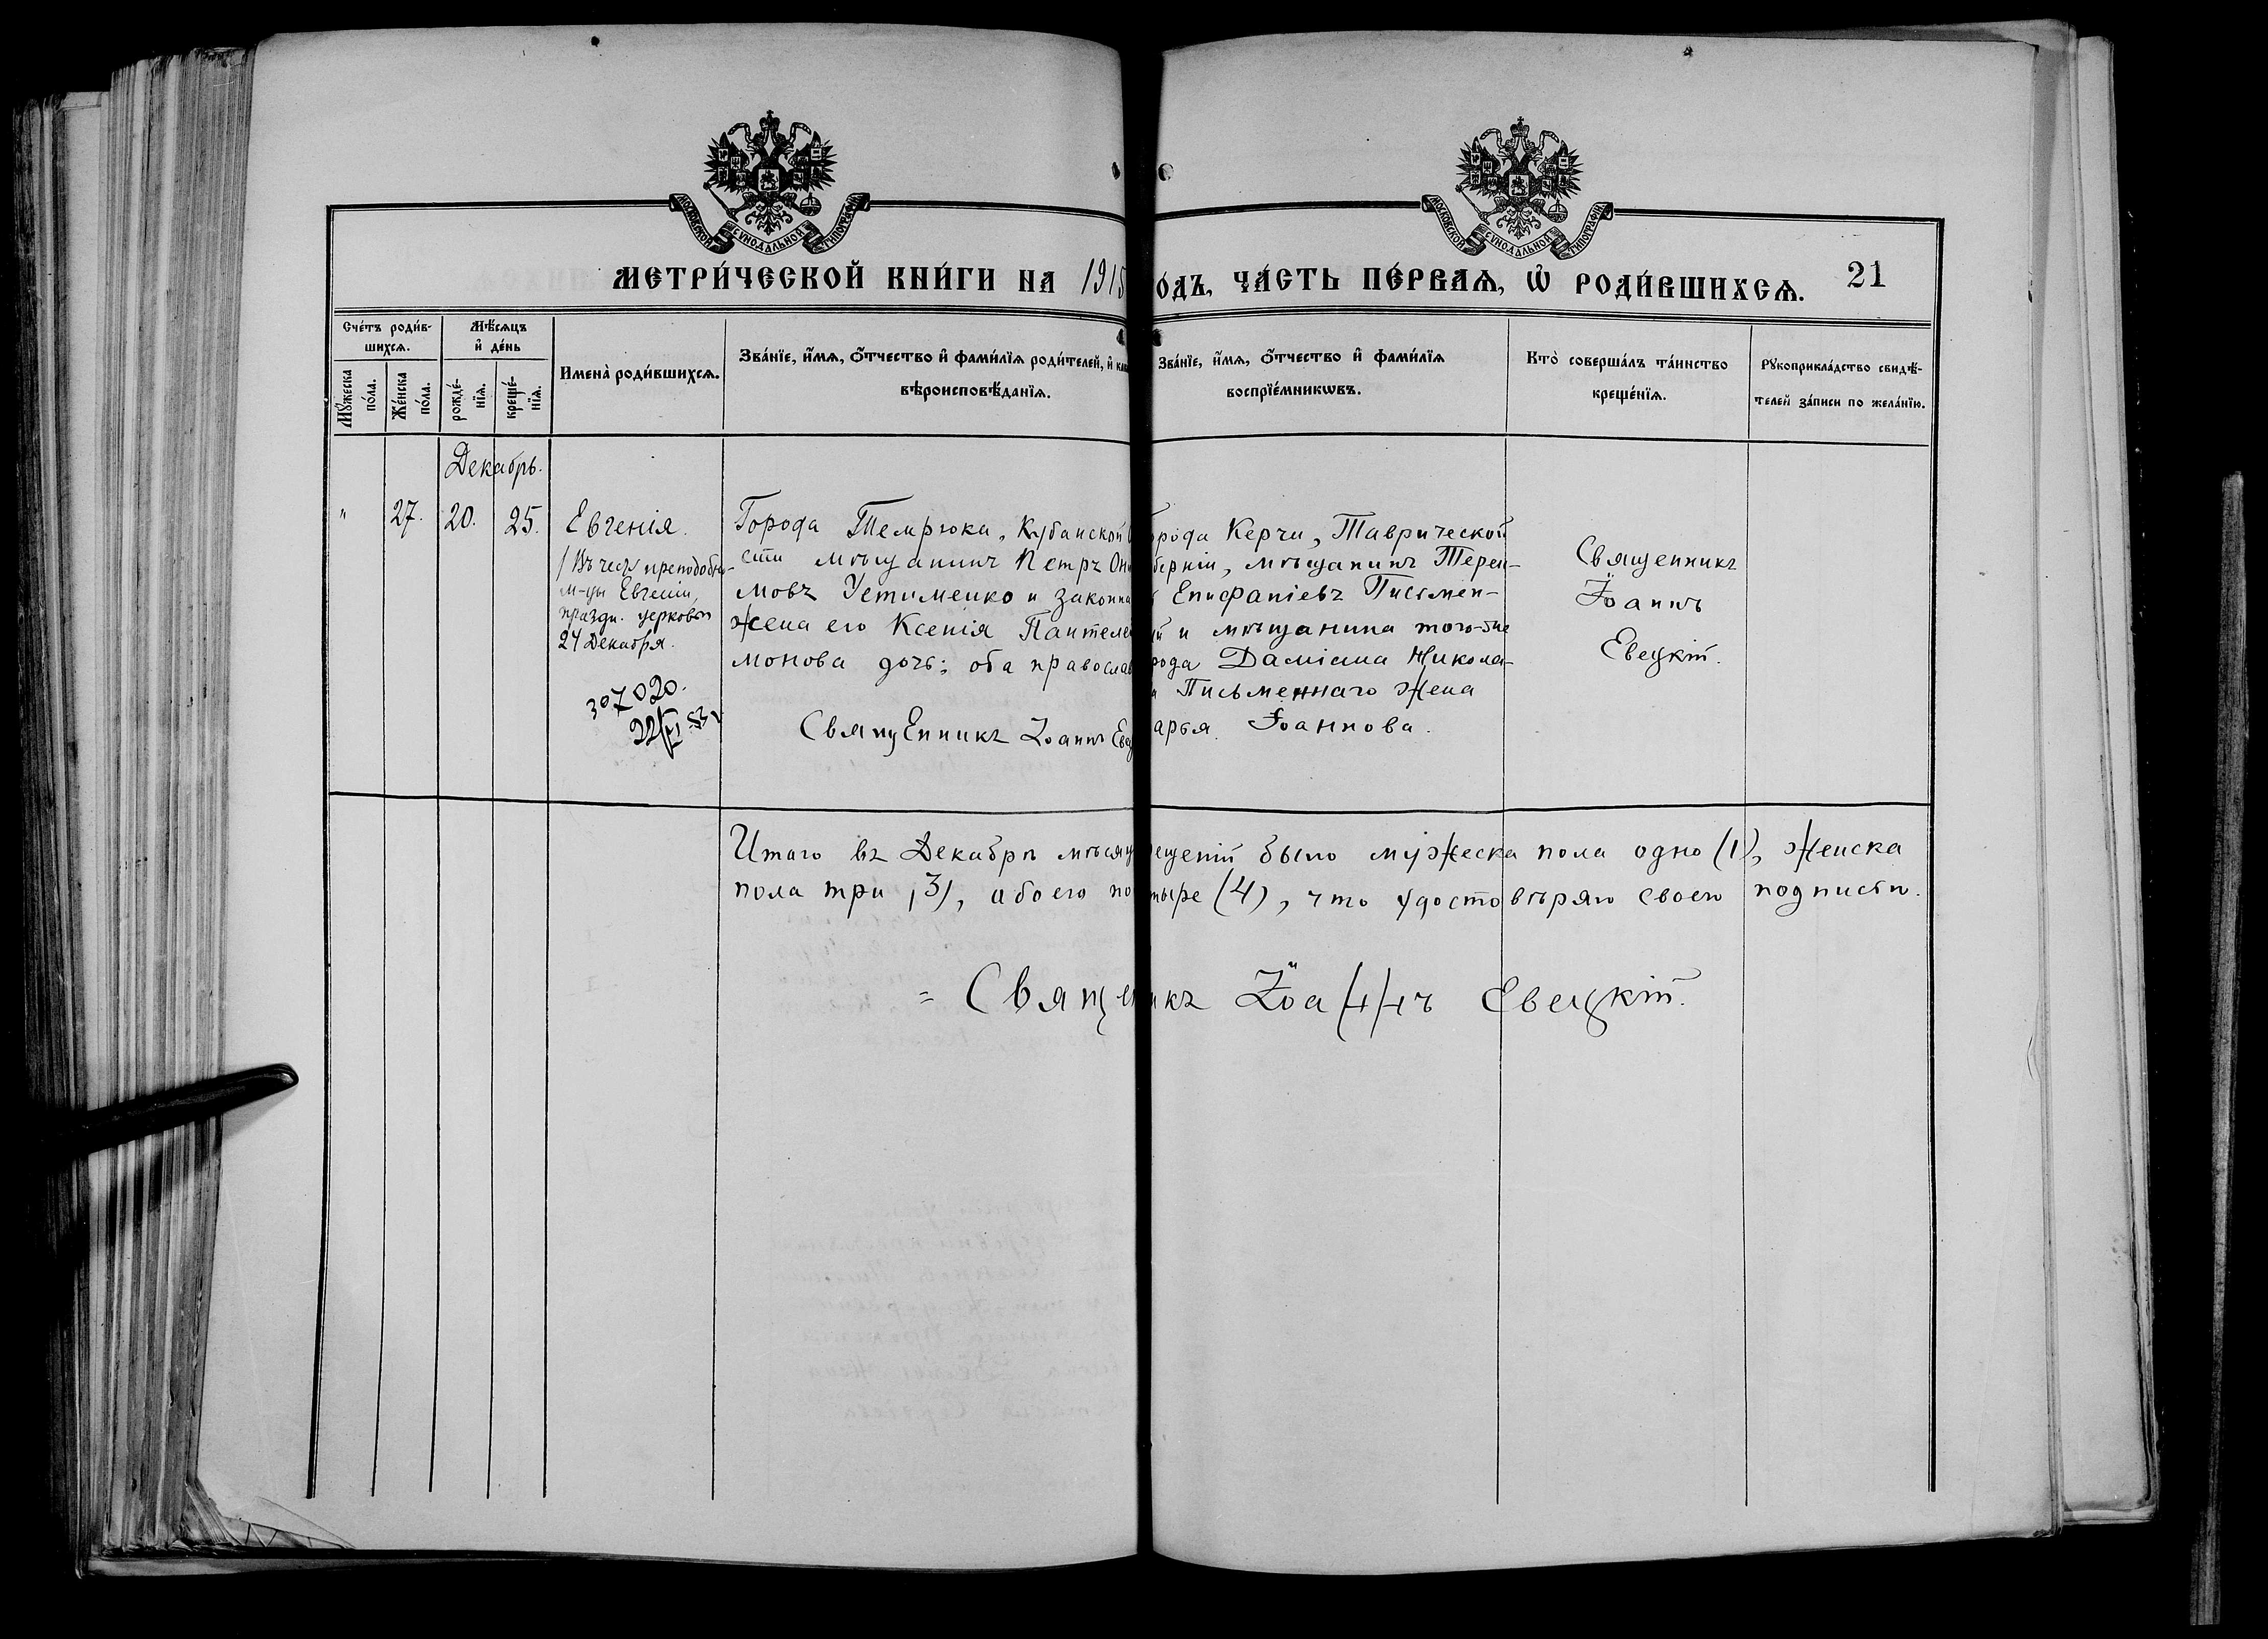 МОСКОВСКОЙ СѴНОДАЛЬНОЙ ТИПОГРАФІИ
МОСКОВСКОЙ СѴНОДАЛЬНОЙ ТИПОГРАФІИ
МЕТРИ́ЧЕСКОЙ КНИ́ГИ НА 1915
О́ДЪ, ЧА́СТЬ ПЕ́РВАѦ, Ѽ РОДИ́ВШИХСѦ. 21
Сче́тъ роди́в-
шихсѧ.
Мѣ́сѧцъ
и҆ де́нь
Мꙋ́жеска
по́ла.
Же́нска
по́ла.
рожде́-
нїѧ.
креще́-
нїѧ.
Имена̀ роди́вшихсѧ.
Зва́нїе, и҆́мѧ, ѻ҆́тчество и҆ фами́лїѧ роди́телей, и҆
вѣроисповѣ́данїѧ.
Зва́нїе, и҆́мѧ, ѻ҆́тчество и҆ фами́лїѧ
воспрїе́мникѡвъ.
Кто̀ соверша́лъ та́инство
креще́нїѧ.
Рꙋкоприкла́дство свидѣ́-
телей за́писи по жела́нїю.
Декабрь.
" 27. 20. 25. Евгенія.
/Въ честь преподобно-
м-цы Евгеніи,
праздн. церковью
24 Декабря.
307020.
Города Темрюка, Кубанской О
сти мѣщанинъ Петръ Они
мовъ Устименко и законна
жена его Ксенія Пантелей
монова дочь; оба православ
Священникъ Іоаннъ Евец
орода Керчи, Таврической
берніи, мѣщанинъ Терен-
Епифаніевъ Письмен-
й и мѣщанина того-же
рода Даміана Никола-
а Письменнаго жена
арья Іоаннова.
Священникъ
Іоаннъ
Евецкій.
Итого въ Декабрѣ мѣсяц ещеній было мужеска пола одно (1), женска
пола три (3), обоего по тыре (4), что удостовѣряю своею подписью.
= Свяще икъ Іоаннъ Евецкій.